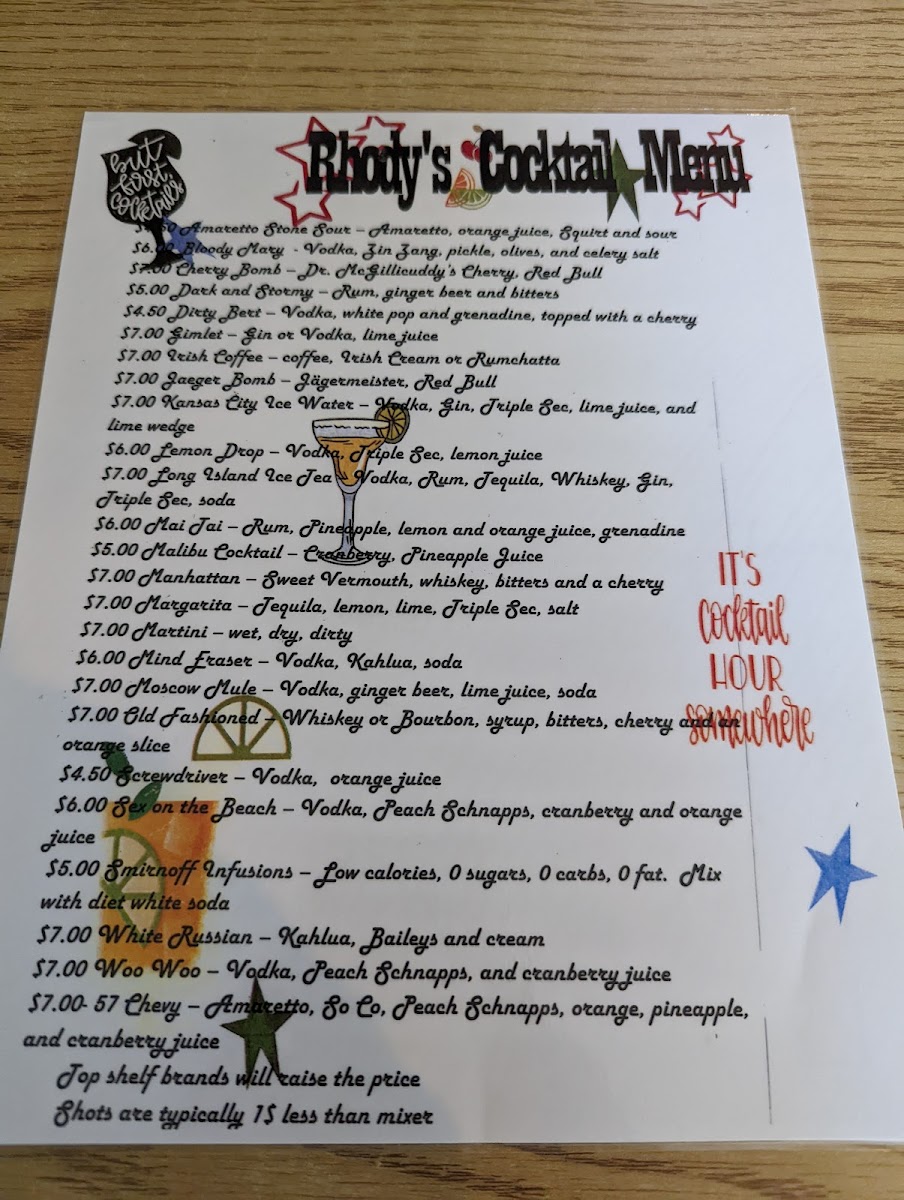 but
first,
cocktails
Rhody's Cocktail Menu
Amaretto Stone Sour – Amaretto, orange juice, Squirt and sour
Bloody Mary - Vodka, Zin Zang, pickle, olives, and celery salt
$7.00 Cherry Bomb – Dr. McGillicuddy's Cherry, Red Bull
$5.00 Dark and Stormy – Rum, ginger beer and bitters
$4.50 Dirty Bert – Vodka, white pop and grenadine, topped with a cherry
$7.00 Gimlet – Gin or Vodka, lime juice
$7.00 Irish Coffee – coffee, Irish Cream or Rumchatta
$7.00 Jaeger Bomb – Jägermeister, Red Bull
$7.00 Kansas City Ice Water – Vodka, Gin, Triple Sec, lime juice, and
lime wedge
$6.00 Lemon Drop – Vodka, Triple Sec, lemon juice
$7.00 Long Island Ice Tea – Vodka, Rum, Tequila, Whiskey, Gin,
Triple Sec, soda
$6.00 Mai Tai – Rum, Pineapple, lemon and orange juice, grenadine
$5.00 Malibu Cocktail – Cranberry, Pineapple Juice
$7.00 Manhattan – Sweet Vermouth, whiskey, bitters and a cherry
$7.00 Margarita – Tequila, lemon, lime, Triple Sec, salt
$7.00 Martini – wet, dry, dirty
$6.00 Mind Eraser – Vodka, Kahlua, soda
$7.00 Moscow Mule – Vodka, ginger beer, lime juice, soda
$7.00 Old Fashioned – Whiskey or Bourbon, syrup, bitters, cherry and an
orange slice
$4.50 Screwdriver – Vodka, orange juice
$6.00 Sex on the Beach – Vodka, Peach Schnapps, cranberry and orange
juice
$5.00 Smirnoff Infusions – Low calories, 0 sugars, 0 carbs, 0 fat. Mix
with diet white soda
$7.00 White Russian – Kahlua, Baileys and cream
$7.00 Woo Woo – Vodka, Peach Schnapps, and cranberry juice
$7.00- 57 Chevy – Amaretto, So Co, Peach Schnapps, orange, pineapple,
and cranberry juice
Top shelf brands will raise the price
Shots are typically 1$ less than mixer
IT'S
cocktail
HOUR
somewhere